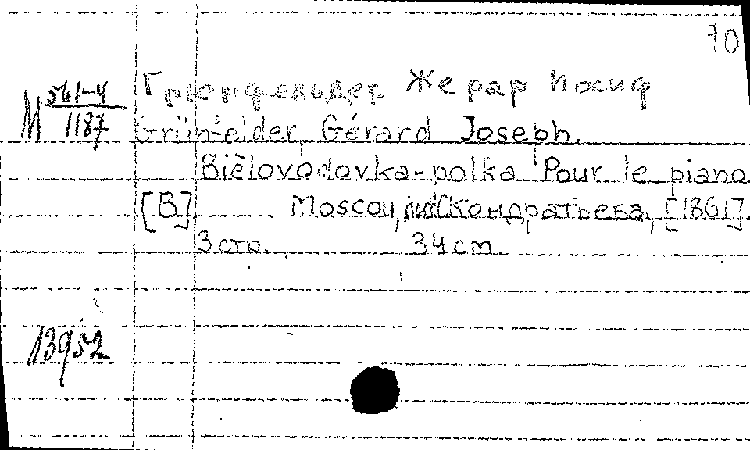 70
Грюнфельдер Жерар Иосиф
М 561-4
1187
Grünfelder, Gérard Joseph.
Bièlovodovka-polka Pour le piano
[В] Moscou, лит. Кондратьева, [1861].
3 стр. 34 cm.
В 952